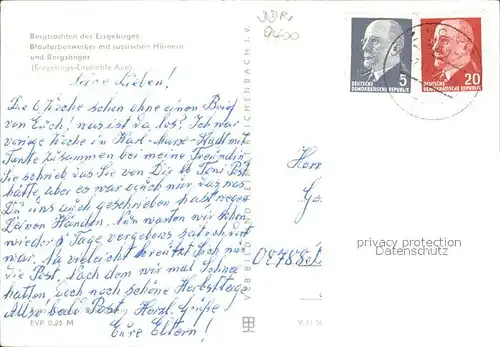 Bergtrachten des Erzgebirges
Blaufarbenwerker mit russischen Hörnern
und Bergsänger
(Erzgebirgs-Ensemble Aue)
5
DEUTSCHE
DEMOKRATISCHE REPUBLIK
20
DEUTSCHE
DEMOKRATISCHE REPUBLIK
Meine Lieben!
Die 6. Woche schon ohne einen Brief
von Euch! was ist da los? Ich war
vorige Woche in Karl-Marx-Stadt mit
Tante zusammen bei meine Freundin
Sie schrieb das Sie von Dir lb Toni Post
hätte, aber es war auch nur das was
Du uns auch geschrieben hast wegen
Deinen Händen. Nun warten wir schon
wieder 8 Tage vergebens seit ich dort
war. Na vieleicht kreuzt sich nur
die Post. Nach dem wir mal Schnee
hatten, doch noch schöne Herbsttage
Also bald Post Herzl. Grüße
Eure Eltern!
EVP 0,25 M
VEB BILD UND REICHENBACH I. V.
Herr
privacy protection
Datenschutz